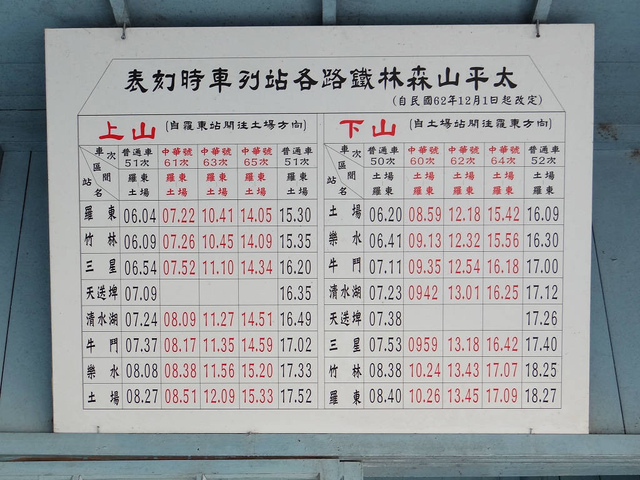 表刻時車列站各路鐵林森山平太
(自民國62年12月1日起改定)
上山 (自羅東站開往土場方向)
車次 區間 站名 普通車51次 中華號61次 中華號63次 中華號65次 普通車51次
羅東 土場 羅東 土場 羅東 土場 羅東 土場 羅東 土場
羅東 06.04 07.22 10.41 14.05 15.30
竹林 06.09 07.26 10.45 14.09 15.35
三星 06.54 07.52 11.10 14.34 16.20
天送埤 07.09 16.35
清水湖 07.24 08.09 11.27 14.51 16.49
牛鬥 07.37 08.17 11.35 14.59 17.02
樂水 08.08 08.38 11.56 15.20 17.33
土場 08.27 08.51 12.09 15.33 17.52
下山 (自土場站開往羅東方向)
車次 區間 站名 普通車50次 中華號60次 中華號62次 中華號64次 普通車52次
羅東 土場 羅東 土場 羅東 土場 羅東 土場 羅東 土場
土場 06.20 08.59 12.18 15.42 16.09
樂水 06.41 09.13 12.32 15.56 16.30
牛鬥 07.11 09.35 12.54 16.18 17.00
清水湖 07.23 0942 13.01 16.25 17.12
天送埤 07.38 17.26
三星 07.53 0959 13.18 16.42 17.40
竹林 08.38 10.24 13.43 17.07 18.25
羅東 08.40 10.26 13.45 17.09 18.27